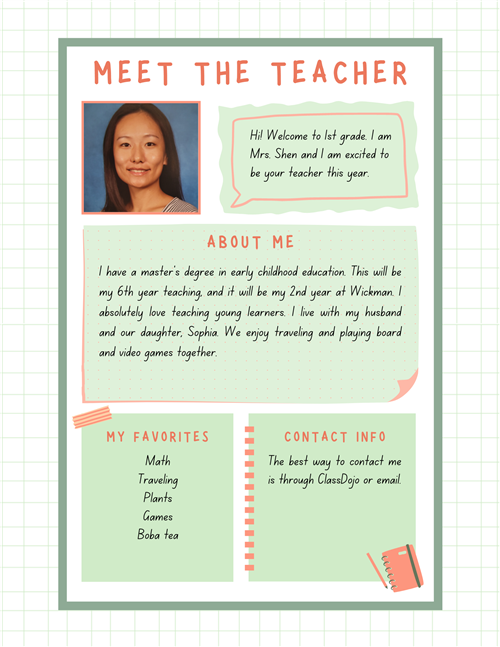 MEET THE TEACHER
Hi! Welcome to 1st grade. I am
Mrs. Shen and I am excited to
be your teacher this year.
ABOUT ME
I have a master's degree in early childhood education. This will be
my 6th year teaching, and it will be my 2nd year at Wickman. I
absolutely love teaching young learners. I live with my husband
and our daughter, Sophia. We enjoy traveling and playing board
and video games together.
MY FAVORITES
Math
Traveling
Plants
Games
Boba tea
CONTACT INFO
The best way to contact me
is through ClassDojo or email.